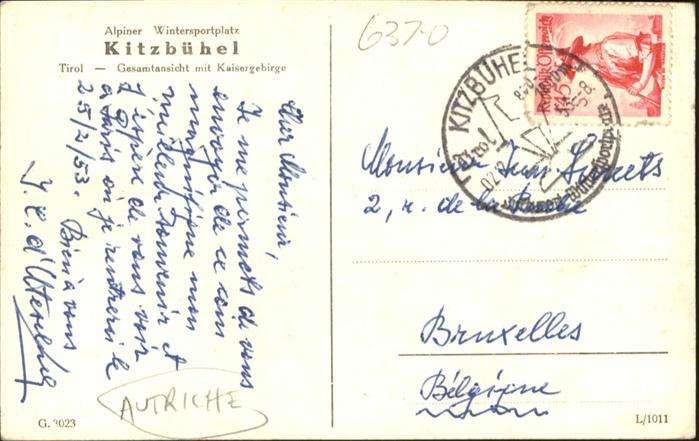 Alpiner Wintersportplatz
Kitzbühel
Tirol — Gesamtansicht mit Kaisergebirge
6370
KITZBÜHEL
Tirol
Cher Monsieur,
Je me permets de vous
envoyer de ce coin
magnifique mon
meilleur souvenir et
j'espère de vous voir
à Paris où je rentrerai le
25/2/53. Bien à vous
Monsieur Jean
2, r. de la
Bruxelles
Bélgique
AUTRICHE
G. 3023
L/1011